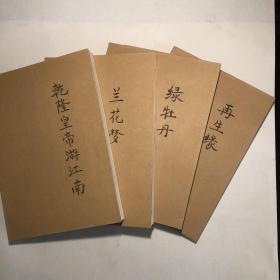 乾隆皇帝游江南
兰花梦
绿牡丹
再生缘